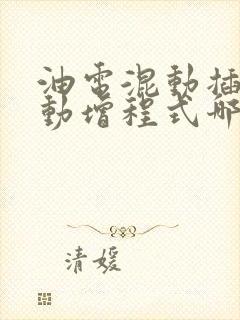 油電混動插
動增程式哪
清媛